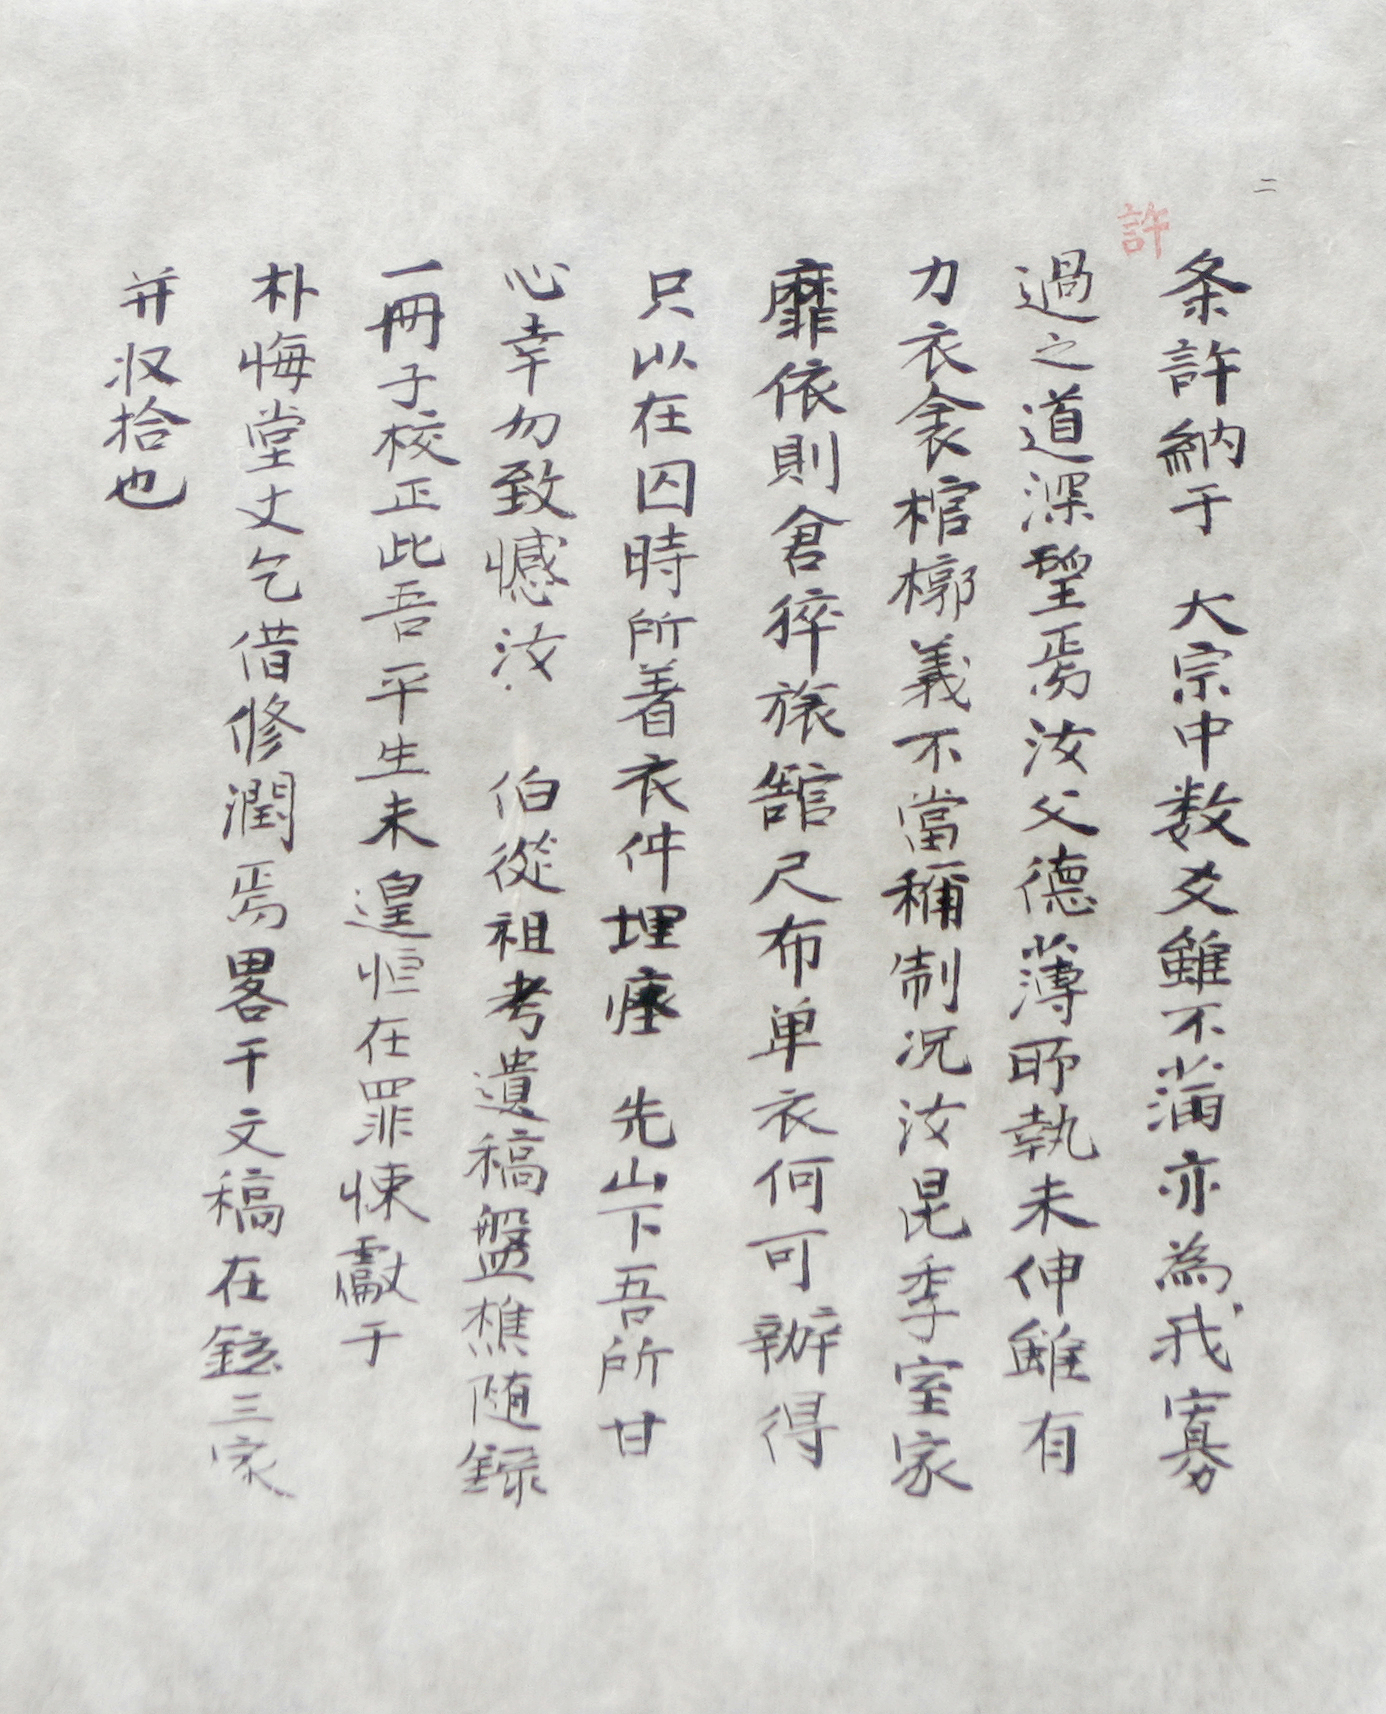 二
許
条許納于 大宗中数爻雖不滿亦為我寡
過之道深望焉汝父德薄所執未伸雖有
力衣衾棺槨義不當稱制況汝昆季室家
靡依則倉猝旅舘尺布单衣何可辦得
只以在囚時所着衣件埋瘞 先山下吾所甘
心幸勿致憾汝 伯從祖考遺稿盤樵随録
一冊子校正此吾平生未遑恒在罪悚獻于
朴悔堂丈乞借修潤焉畧干文稿在鉉三家
并収拾也